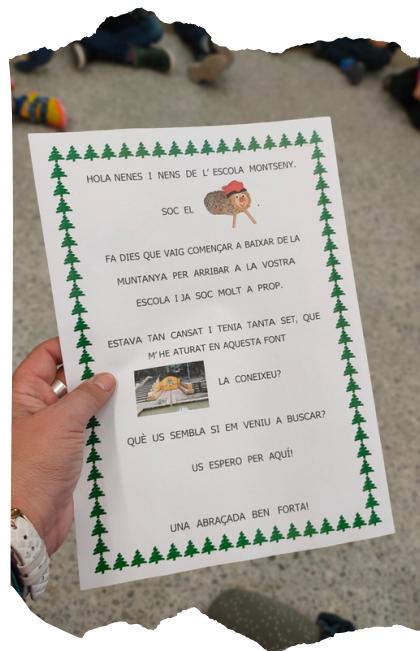 HOLA NENES I NENS DE L' ESCOLA MONTSENY.
SOC EL .
FA DIES QUE VAIG COMENÇAR A BAIXAR DE LA
MUNTANYA PER ARRIBAR A LA VOSTRA
ESCOLA I JA SOC MOLT A PROP.
ESTAVA TAN CANSAT I TENIA TANTA SET, QUE
M' HE ATURAT EN AQUESTA FONT
LA CONEIXEU?
QUÈ US SEMBLA SI EM VENIU A BUSCAR?
US ESPERO PER AQUÍ!
UNA ABRAÇADA BEN FORTA!